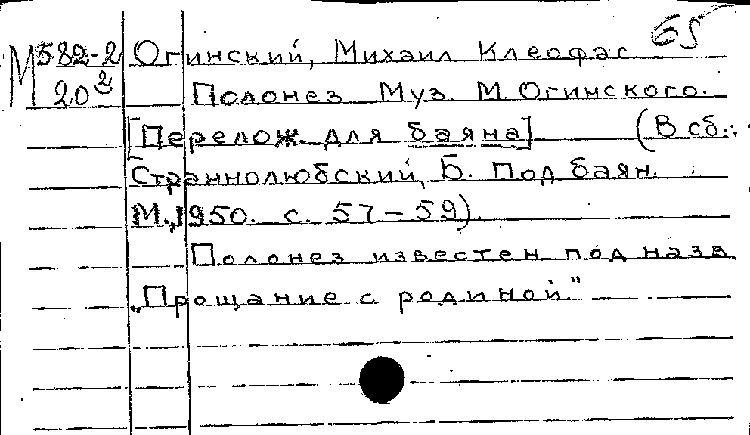 65
М582-2 Огинский, Михаил Клеофас
20² Полонез Муз. М. Огинского.
[Перелож. для баяна] (В сб.:
Страннолюбский, Б. Под баян.
М., 1950. с. 57-59).
Полонез известен под назв
„Прощание с родиной."